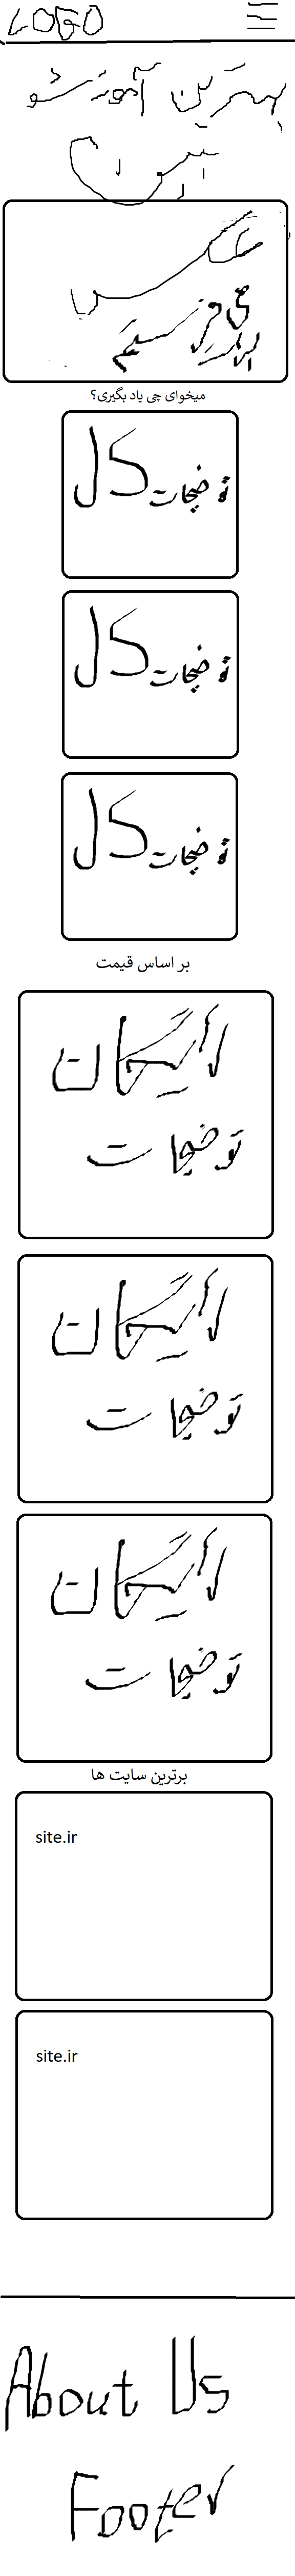 LOGO
بهترین آموزشو
ببین
عکس
میخوای چی یاد بگیری؟
توضیحات کل
توضیحات کل
توضیحات کل
بر اساس قیمت
رایگان
توضیحات
رایگان
توضیحات
رایگان
توضیحات
برترین سایت ها
site.ir
site.ir
About Us
Footer